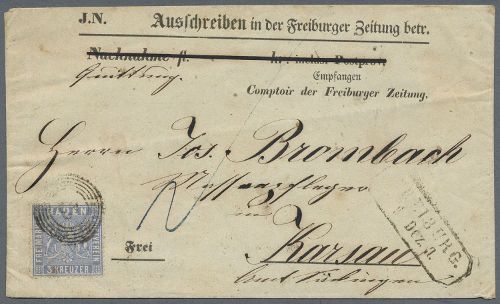 J.N. Ausschreiben in der Freiburger Zeitung betr.
Nachnahme fl. kr. incluf Postprov.
Quittung.
Empfangen
Comptoir der Freiburger Zeitung.
Herrn Jos. Brombach
in
Karsau
Amt Säckingen
Frei
BADEN
FREIMARKE
3 KREUZER
FREIBURG.
DEZ.